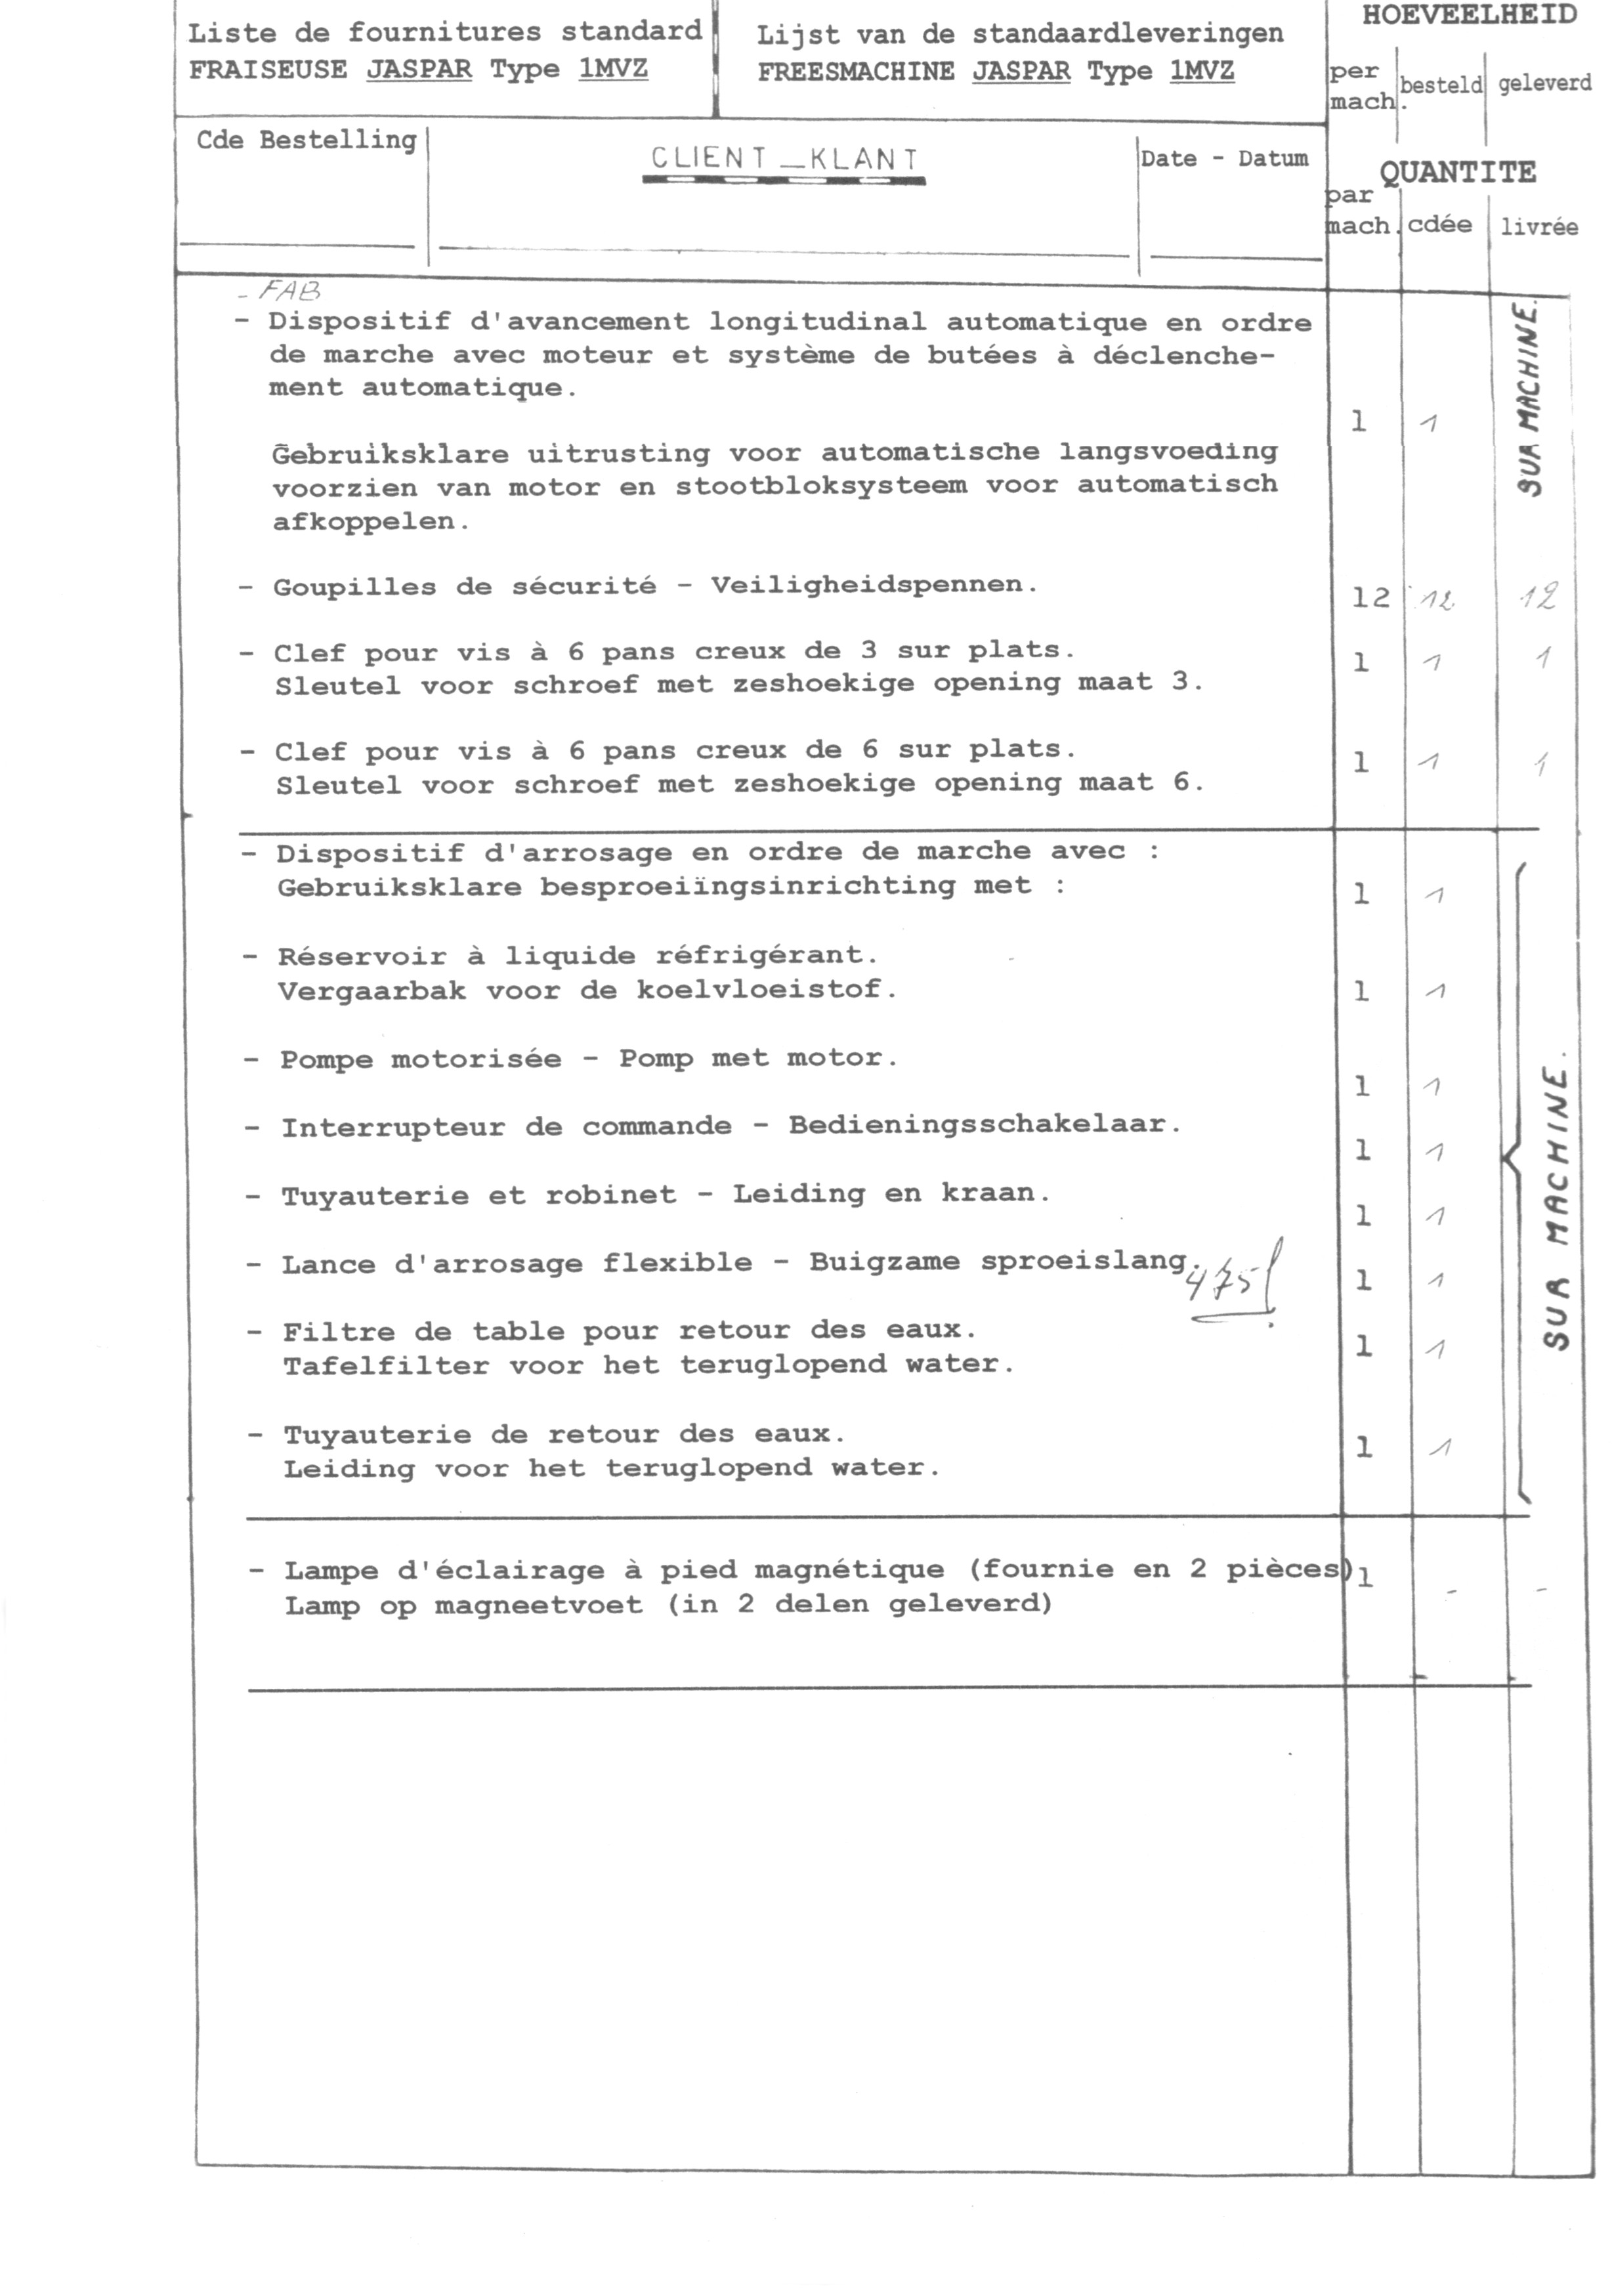 Liste de fournitures standard
FRAISEUSE JASPAR Type 1MVZ
Lijst van de standaardleveringen
FREESMACHINE JASPAR Type 1MVZ
HOEVEELHEID
per mach. besteld geleverd
Cde Bestelling
CLIENT _ KLANT
Date - Datum
QUANTITE
par mach. cdée livrée
- FAB
- Dispositif d'avancement longitudinal automatique en ordre
de marche avec moteur et système de butées à déclenche-
ment automatique.
1 1 SUR MACHINE.
Gebruiksklare uitrusting voor automatische langsvoeding
voorzien van motor en stootbloksysteem voor automatisch
afkoppelen.
- Goupilles de sécurité - Veiligheidspennen. 12 12 12
- Clef pour vis à 6 pans creux de 3 sur plats. 1 1 1
Sleutel voor schroef met zeshoekige opening maat 3.
- Clef pour vis à 6 pans creux de 6 sur plats. 1 1 1
Sleutel voor schroef met zeshoekige opening maat 6.
- Dispositif d'arrosage en ordre de marche avec :
Gebruiksklare besproeiïngsinrichting met : 1 1
- Réservoir à liquide réfrigérant.
Vergaarbak voor de koelvloeistof. 1 1
- Pompe motorisée - Pomp met motor. 1 1
- Interrupteur de commande - Bedieningsschakelaar. 1 1
- Tuyauterie et robinet - Leiding en kraan. 1 1
- Lance d'arrosage flexible - Buigzame sproeislang. 1 1
SUR MACHINE.
- Filtre de table pour retour des eaux. 1 1
Tafelfilter voor het teruglopend water.
- Tuyauterie de retour des eaux. 1 1
Leiding voor het teruglopend water.
- Lampe d'éclairage à pied magnétique (fournie en 2 pièces) 1 - -
Lamp op magneetvoet (in 2 delen geleverd)